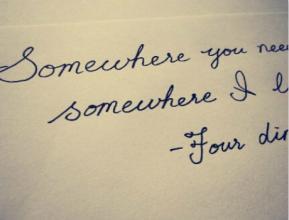 Somewhere you nee
somewhere I l
-Four dir